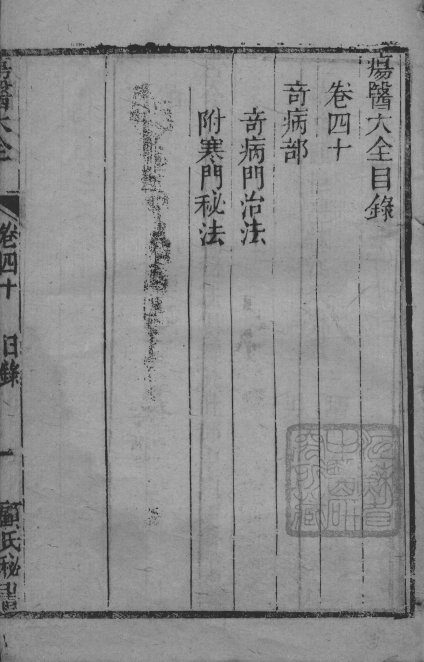 瘍醫大全目錄
卷四十
奇病部
奇病門治法
附寒門秘法
瘍醫大全
卷四十
目錄
一
顧氏秘書